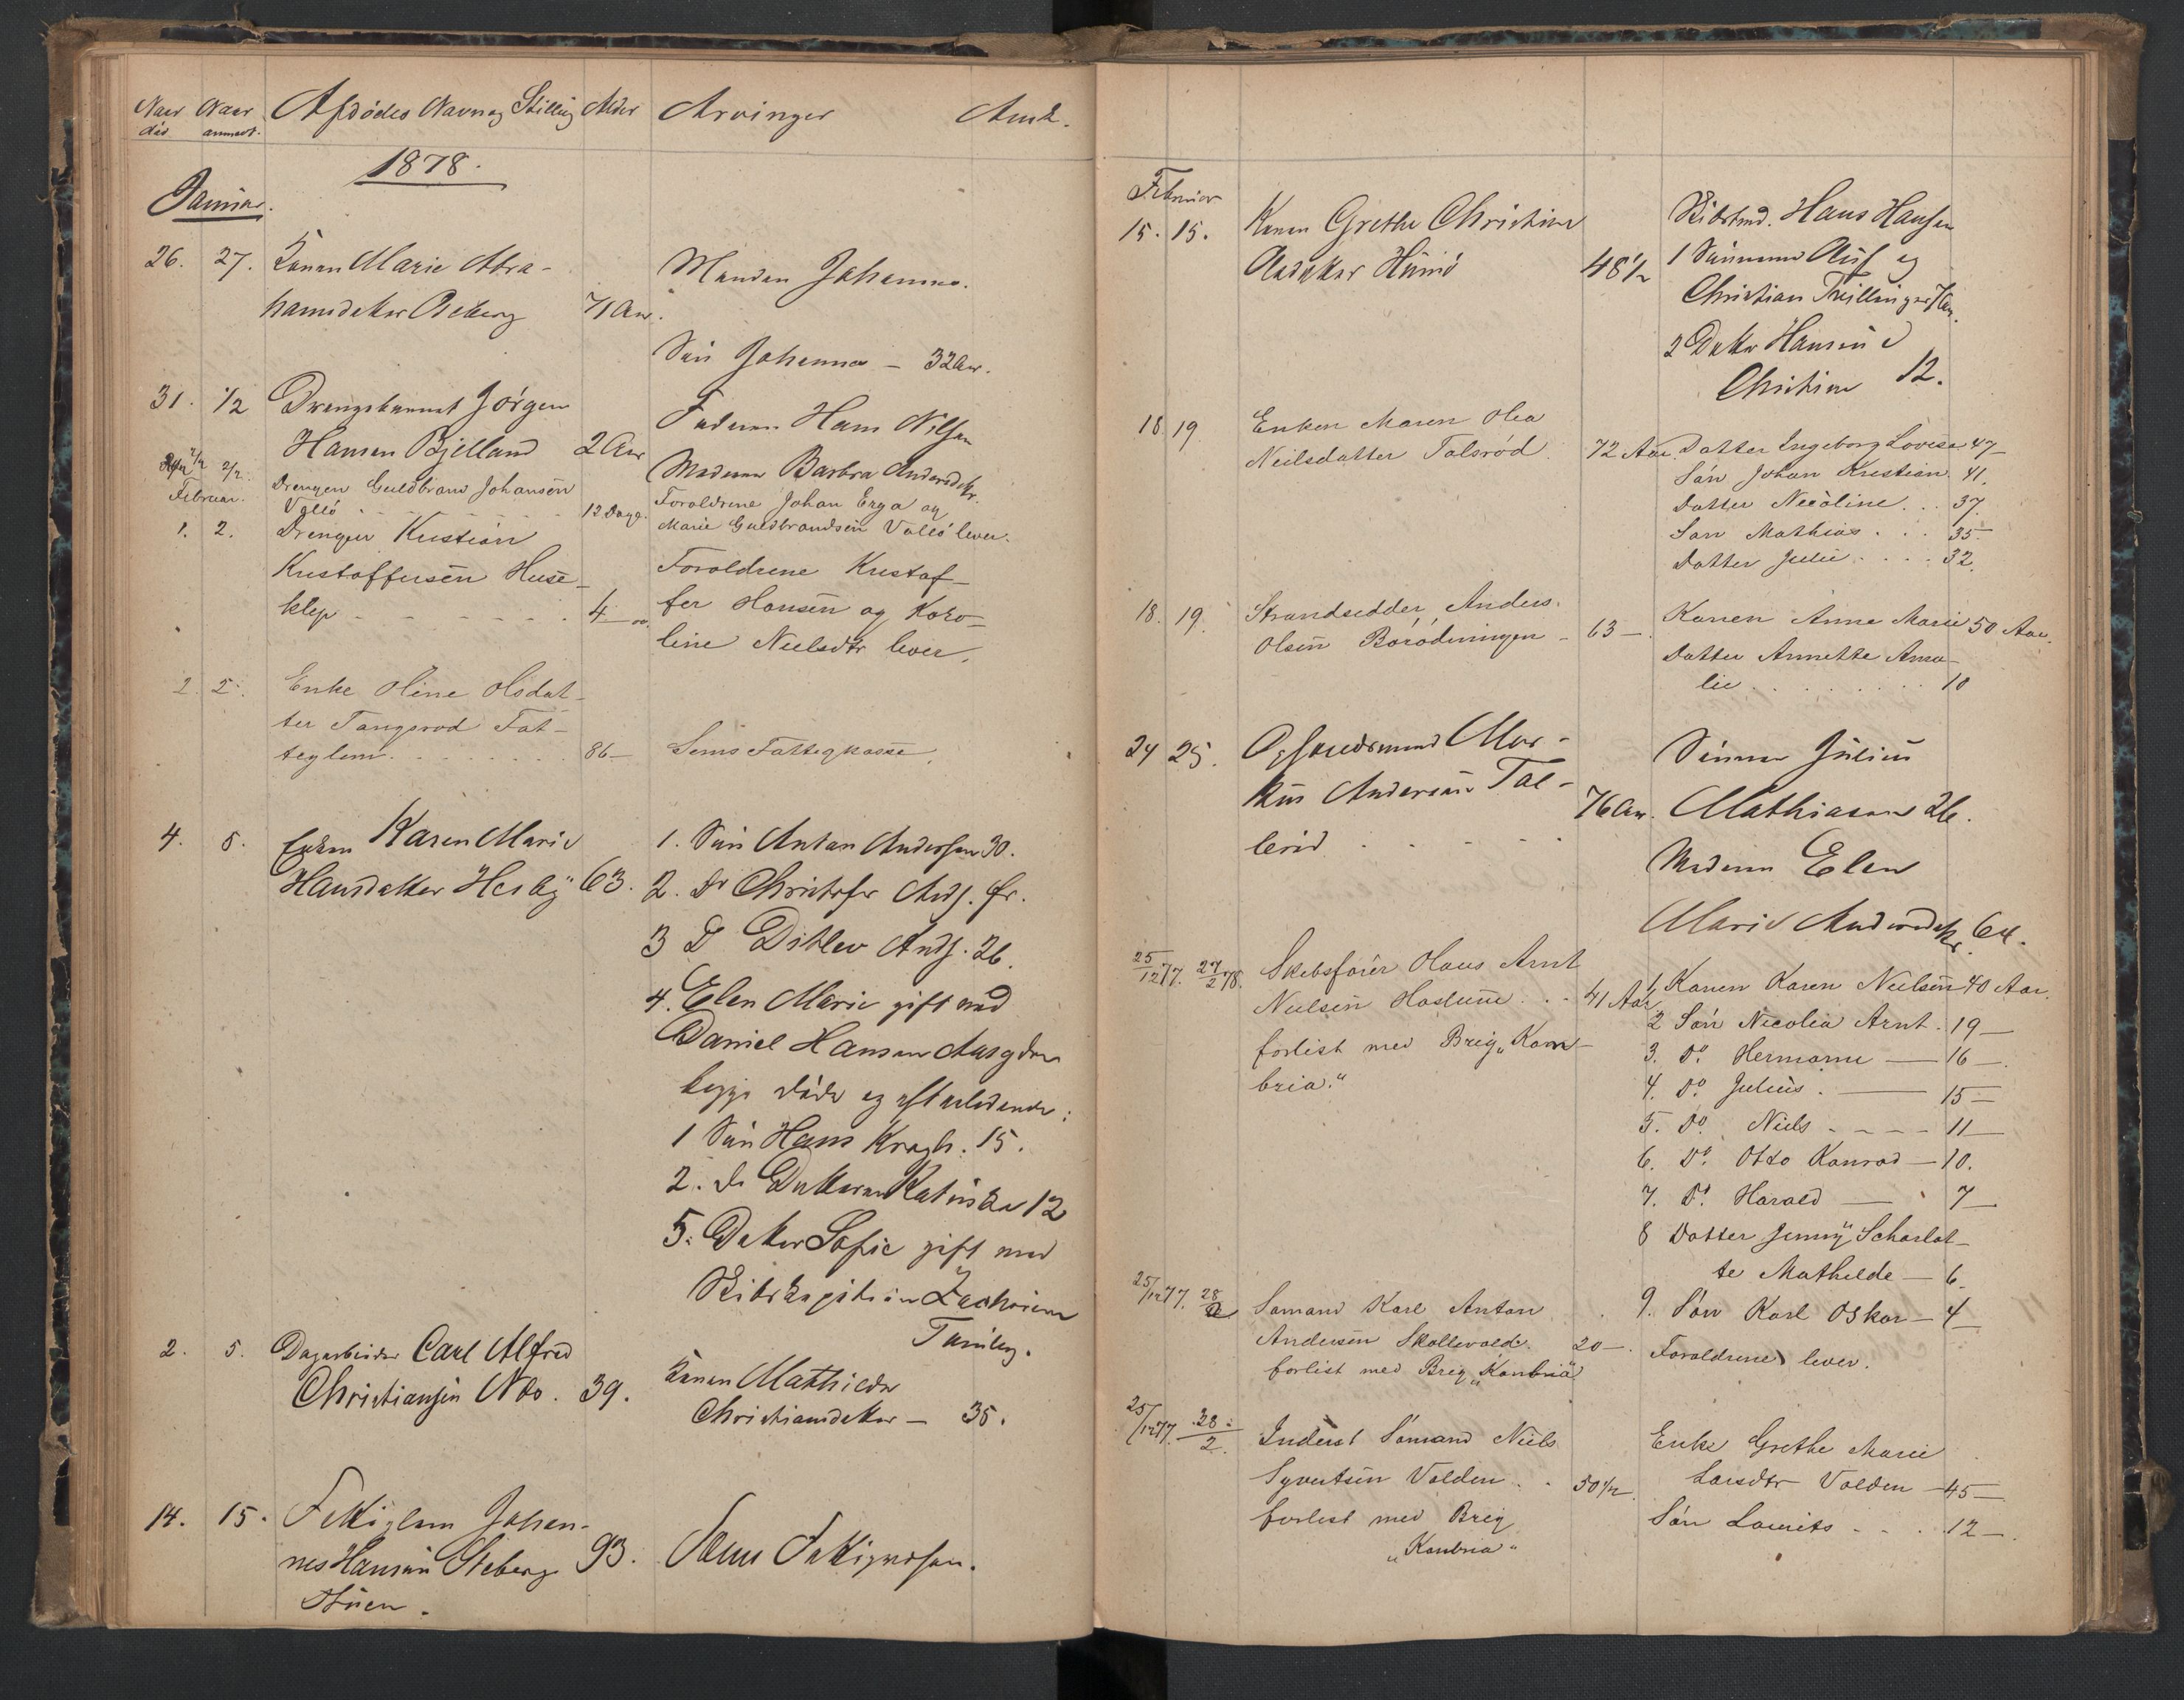 Naar Naar Afdödes Navn og Stilling Alder Arvinger Anm.
död anmeldt.
1878.
Januar.
26. 27. Konen Marie Abra-
hamsdatter Manden Johannes.
71 Aar.
Sön Johannes - 32 Aar.
31. 1/2 Drengebarnet Jörgen
Hansen Bjelland 2 Aar
Faderen Hans Nilsen
Moderen Barbra Andersdtr.
2/2 Drengen Guldbrand Johansen
Vallö 12 Dage.
Foraldrene Johan Erga og
Marie Guldbrandsen Vallö lever.
Februar.
1. 2. Drengen Kristian
Kristoffersen Huse-
klep 4
Foraldrene Kristof-
fer Hansen og Karo-
line Nielsdtr lever.
2. 5. Enke Oline Olsdat-
ter Tangsrod Fat-
tiglem 86- Sems Fattigkasse.
4. 5. Enken Karen Marie
Hansdatter Hesby 63.
1. Sön Anton Andersen 30.
2. Do Christofer Ands.
3 D Ditlev Ands. 26.
4. Elen Marie gift med
Daniel Hansen
begge döde og efterladende:
1 Sön Hans 15.
2. Do Datteren 12
5. Datter Sofie gift med
Skibskaptein
2. 5. Dagarbeider Carl Alfred
Christiansen Nes. 39.
Konen Mathilde
Christiansdatter - 35.
14. 15. Fattiglem Johan-
nes Hansen 93. Sems
Februar
15. 15. Konen Grethe Christine
48 1/2
Skibstmd. Hans Hansen
1 Sönnene og
Christian Tvillinger 7 Aar.
2 Dattr Hansine
Christine 12.
18. 19. Enken Maren Olea
Neilsdatter Tolsröd 72 Aar. Datter Ingeborg Lovise 47-
Sön Johan Kristian. 41.
Datter Nicoline... 37.
Sön Mathias... 35-
Datter Julie.... 32.
18. 19. Strandsidder Anders
Olsen 63-. Konen Anne Marie 50 Aar.
Datter Annette Ama-
lie 10
24 25. Markus Andersen
76 Aar.
Sönnen Julius
Mathiasen 26.
Moderen Elen
Marie Andersdtr. 64.
25/12 77. 27/2 78. Skibsförer Hans Arnt
Nielsen Haslum... 41 Aar
forlist med Brig „Kam-
bria.“
1. Konen Karen Nielsen 40 Aar.
2 Sön Nicolia Arnt. 19-
3. Do Hermann - 16-.
4. Do Julius. - 15-
5. Do Niels - - - - 11-
6. Do Otto Konrad - 10.
7. Do Harald - 7-
8 Datter Jenny Scharlot-
te Mathilde - 6.
9. Sön Karl Oskar - 4
25/12 77. 28/2 Sömand Karl Anton
Andersen Skallevold. 20-. Foraldrene lever.
forlist med Brig „Kambria“
25/12 77. 28/2. Inderst Sömand Niels
Syvertsen Volden.. 50 1/2.
forlist med Brig
„Kambria“
Enke Grethe Marie
Larsdtr Volden - 45-
Sön Laurits - - . 12-.